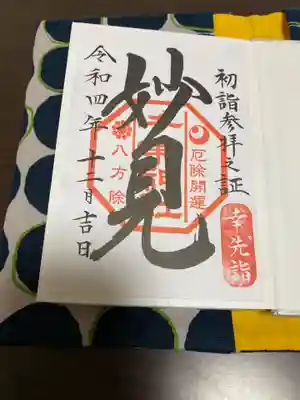 初詣参拝之証
幸先詣
厄除開運
妙見
八方除
令和四年十二月吉日